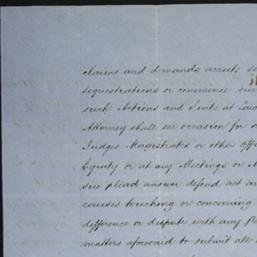 claims and demands arrests
sequestrations or commence
such Actions and Suits at
Attorney shall see occasion for
Judges Magistrates or other
Equity or at any Meetings or
sue plead answer defend act
causes touching or concerning
difference or dispute with any
matters aforesaid to submit all